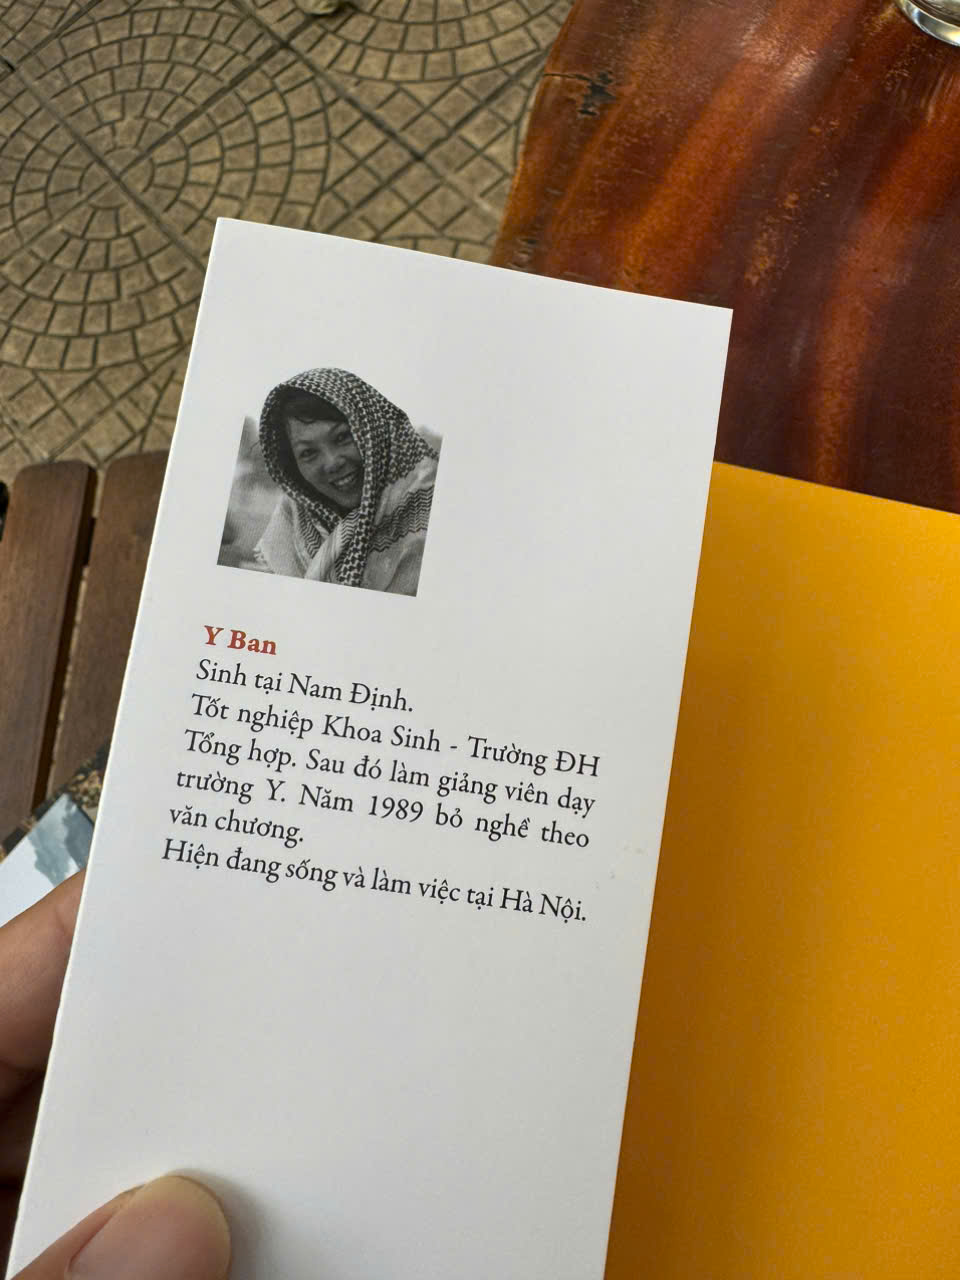 Y Ban
Sinh tại Nam Định.
Tốt nghiệp Khoa Sinh - Trường ĐH
Tổng hợp. Sau đó làm giảng viên dạy
trường Y. Năm 1989 bỏ nghề theo
văn chương.
Hiện đang sống và làm việc tại Hà Nội.